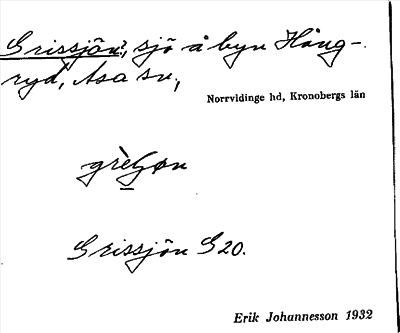 Grissjön?, sjö å byn Häng-
ryd, Asa sn,
Norrvidinge hd, Kronobergs län
Grissjön G 20.
Erik Johannesson 1932